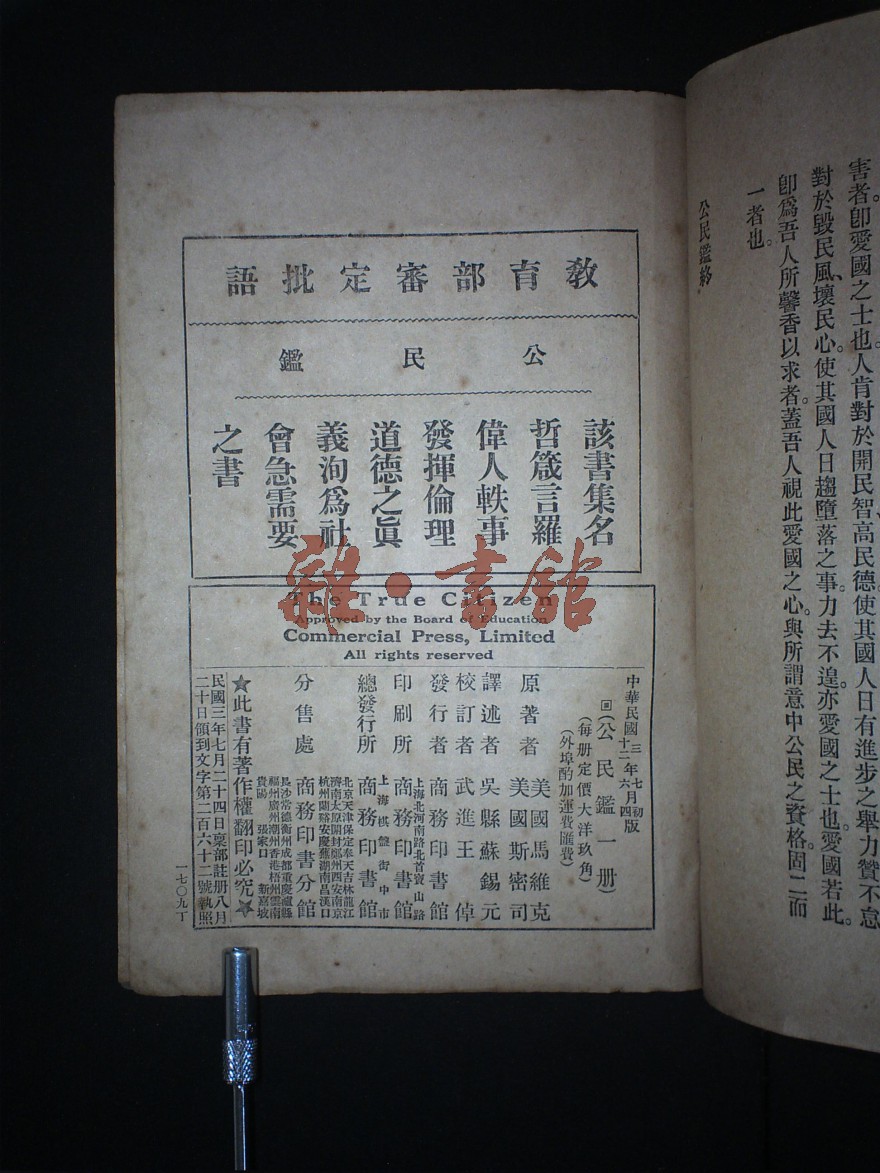 害者。卽愛國之士也。人肯對於開民智、高民德、使其國人日有進步之舉、力贊不怠
對於毀民風、壞民心、使其國人日趨墮落之事、力去不遑、亦愛國之士也。愛國若此。
卽爲吾人所馨香以求者。蓋吾人視此愛國之心、與所謂意中公民之資格、固二而
一者也。
公民鑑終
敎育部審定批語
公民鑑
該書集名
哲箴言羅
偉人軼事
發揮倫理
道德之眞
義洵爲社
會急需要
之書
雜·書館
The True Citizen
Approved by the Board of Education
Commercial Press, Limited
All rights reserved
中華民國三年七月初版
十二年六月四版
(公民鑑一册)
(每册定價大洋玖角)
(外埠酌加運費匯費)
原著者 美國馬維克
美國斯密司
譯述者 吳縣蘇錫元
校訂者 武進王倬
發行者 商務印書館
上海北河南路北首寶山路
印刷所 商務印書館
上海棋盤街中市
總發行所 商務印書館
北京天津保定奉天吉林龍江
濟南太原開封鄭州西安南京
杭州蘭谿安慶蕪湖南昌漢口
分售處 商務印書分館
長沙常德衡州成都重慶瀘縣
福州廣州潮州香港梧州雲南
貴陽 張家口 新嘉坡
★此書有著作權翻印必究★
民國三年七月二十四日稟部註册八月
二十日領到文字第二百六十二號執照
一七〇九丁